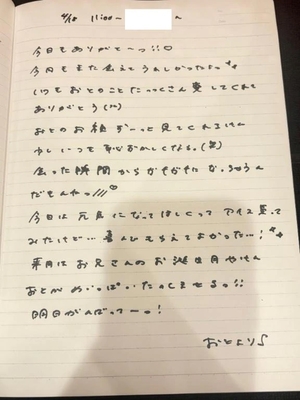 4/18 11:00〜
今日もありがとーっ!!♡
今月もまた会えてうれしかったよ
いつもおとのことたっくさん愛してくれて
ありがとう
おとのお顔ずーっと見てくれるけん
少しいつも恥ずかしくなる。(笑)
会った瞬間からがそがそになっちゃうん
だもんねっ///♡
今日は元気になってほしくってアイス買って
みたけど…喜んでもらえてよかった…!
来月はお兄さんのお誕生月やけん
おとがめいっぱい
明日がんばってーっ!
おとより♪